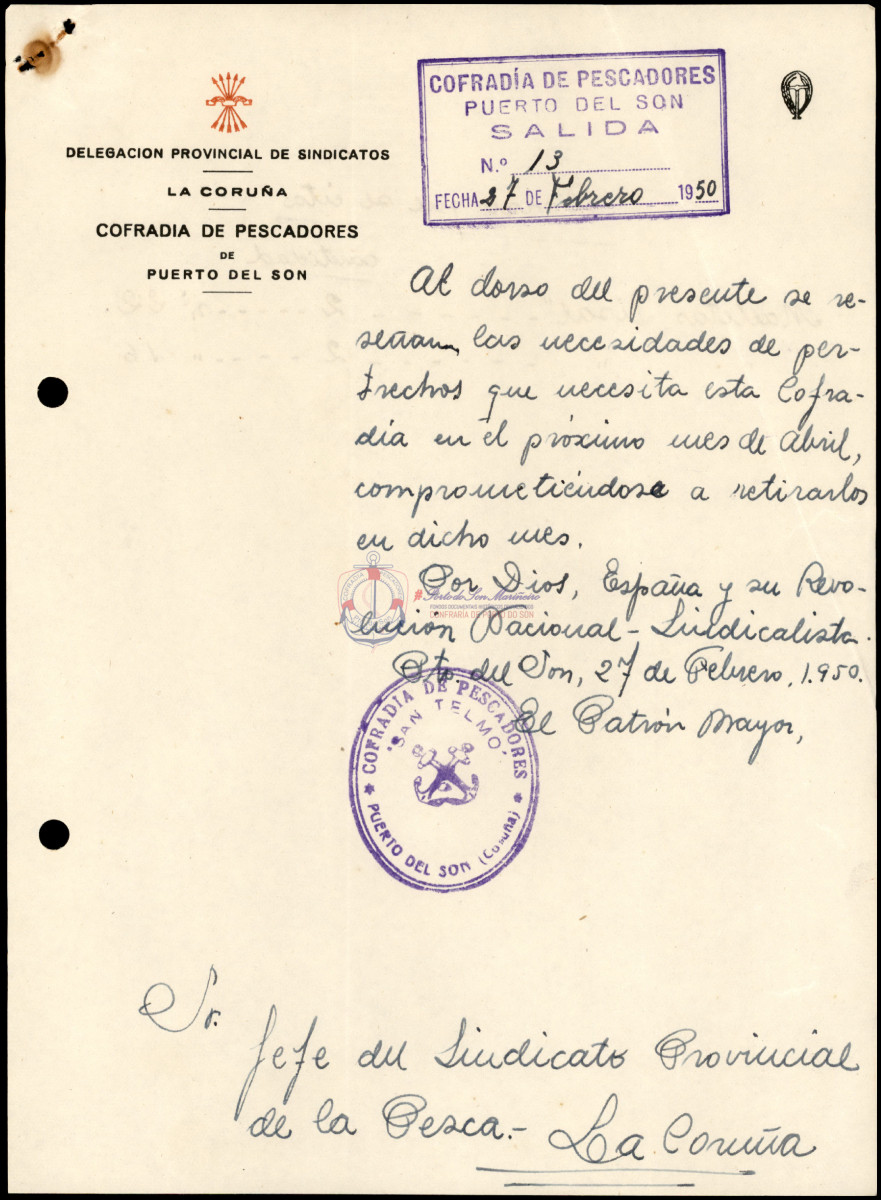 DELEGACION PROVINCIAL DE SINDICATOS
LA CORUÑA
COFRADIA DE PESCADORES
DE
PUERTO DEL SON
COFRADÍA DE PESCADORES
PUERTO DEL SON
SALIDA
N.º 13
FECHA 27 DE Febrero 1950
Al dorso del presente se re-
señan las necesidades de per-
trechos que necesita esta Cofra-
día en el próximo mes de Abril,
comprometiéndose a retirarlos
en dicho mes.
Por Dios, España y su Revo-
lución Nacional-Sindicalista.
Pto. del Son, 27 de Febrero, 1.950.
El Patrón Mayor,
#PortodoSonMariñeiro
CONFRARÍA DE PORTO DO SON
COFRADIA DE PESCADORES
"SAN TELMO"
PUERTO DEL SON (Coruña)
Sr.
Jefe del Sindicato Provincial
de la Pesca.- La Coruña